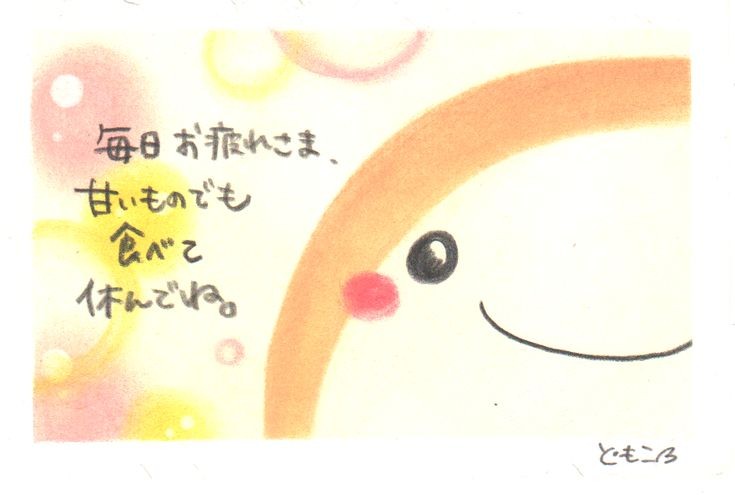 毎日お疲れさま、
甘いものでも
食べて
休んでね。
ともころ